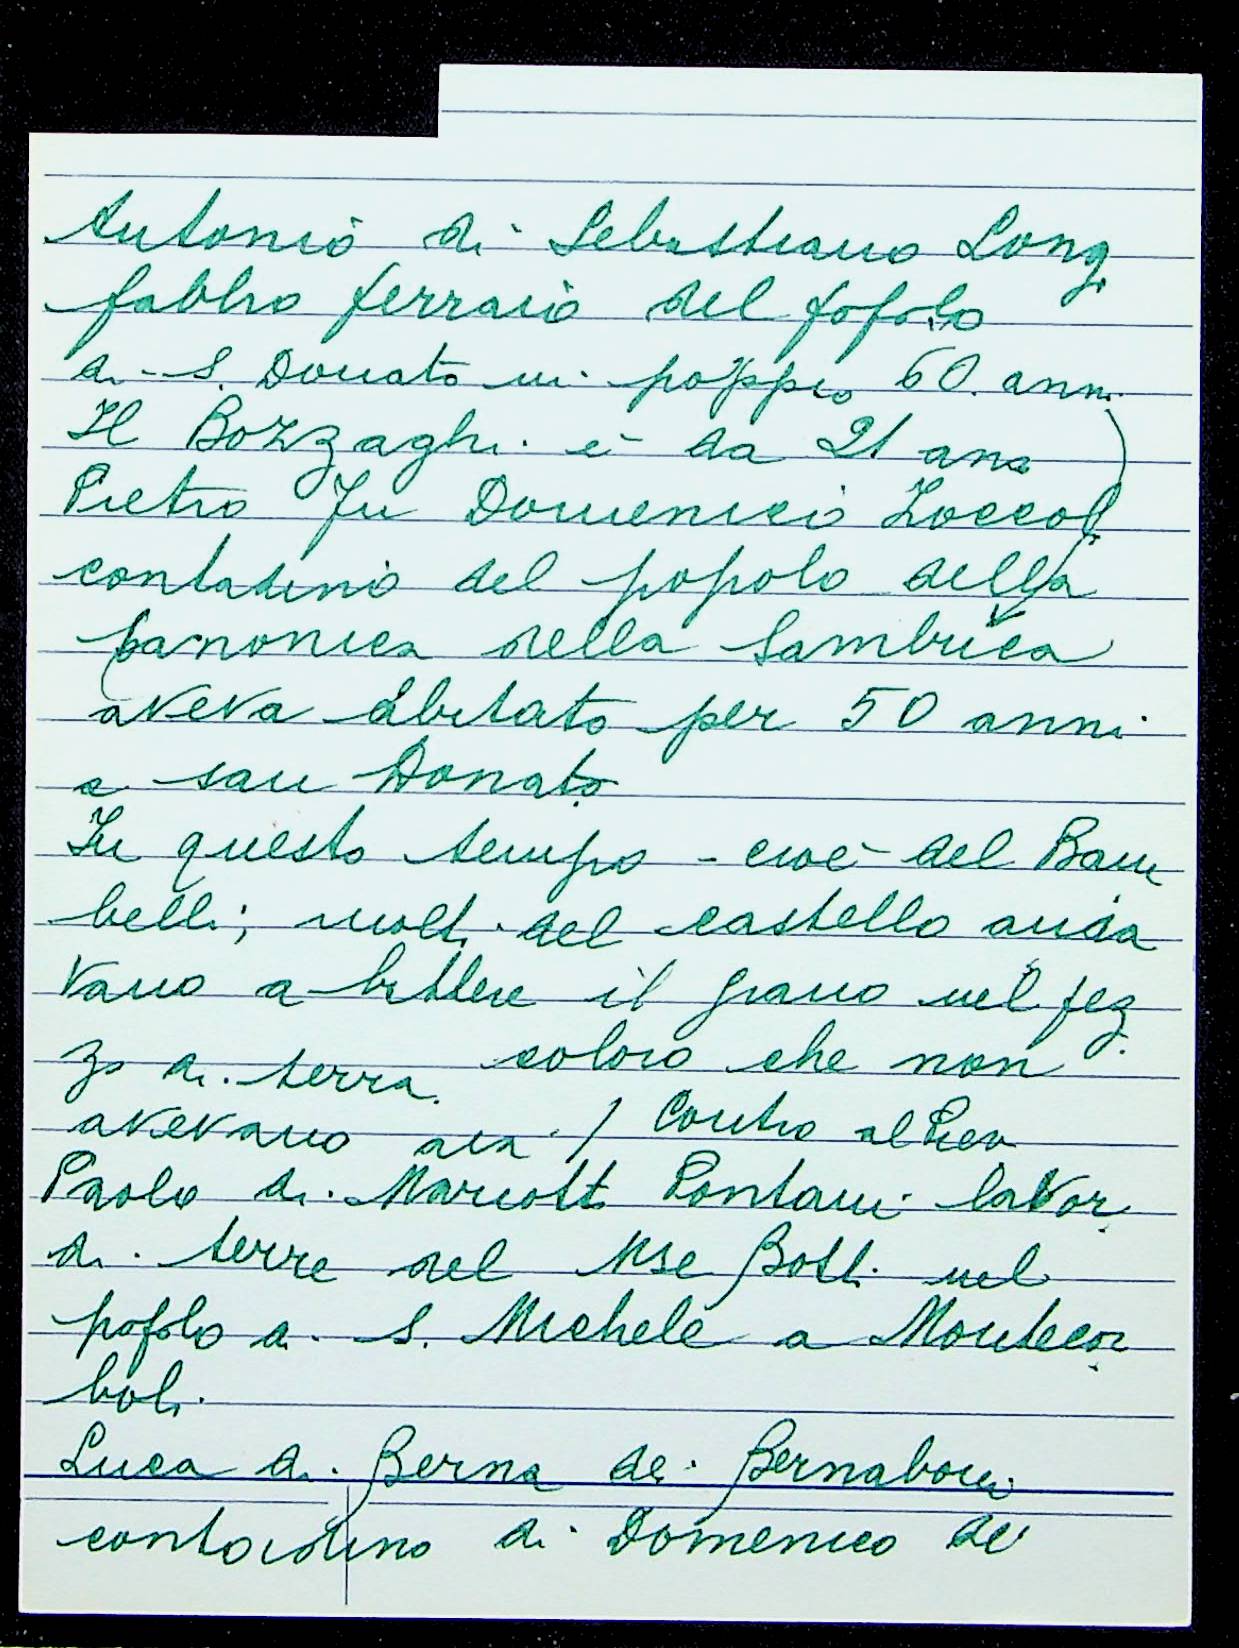 Antonio di Sebastiano Long
fabbro ferraio del popolo
di S. Donato in poppio 60 anni
Il Bozzaghi è da 21 ana
Pietro fu Domenico Zoccol
contadino del popolo della
canonica della Sambuca
aveva abitato per 50 anni
a san Donato
In questo tempo - cioè - del Bam
belli; molti del castello anda
vano a battere il grano nel pez
zo di terra coloro che non
avevano aia / Contro al Piev
Paolo di Mariotto Pontani lavor
di terre del Mse Botti nel
popolo di S. Michele a Montecor
boli
Luca di Berna dei Bernaboni
contadino di Domenico de